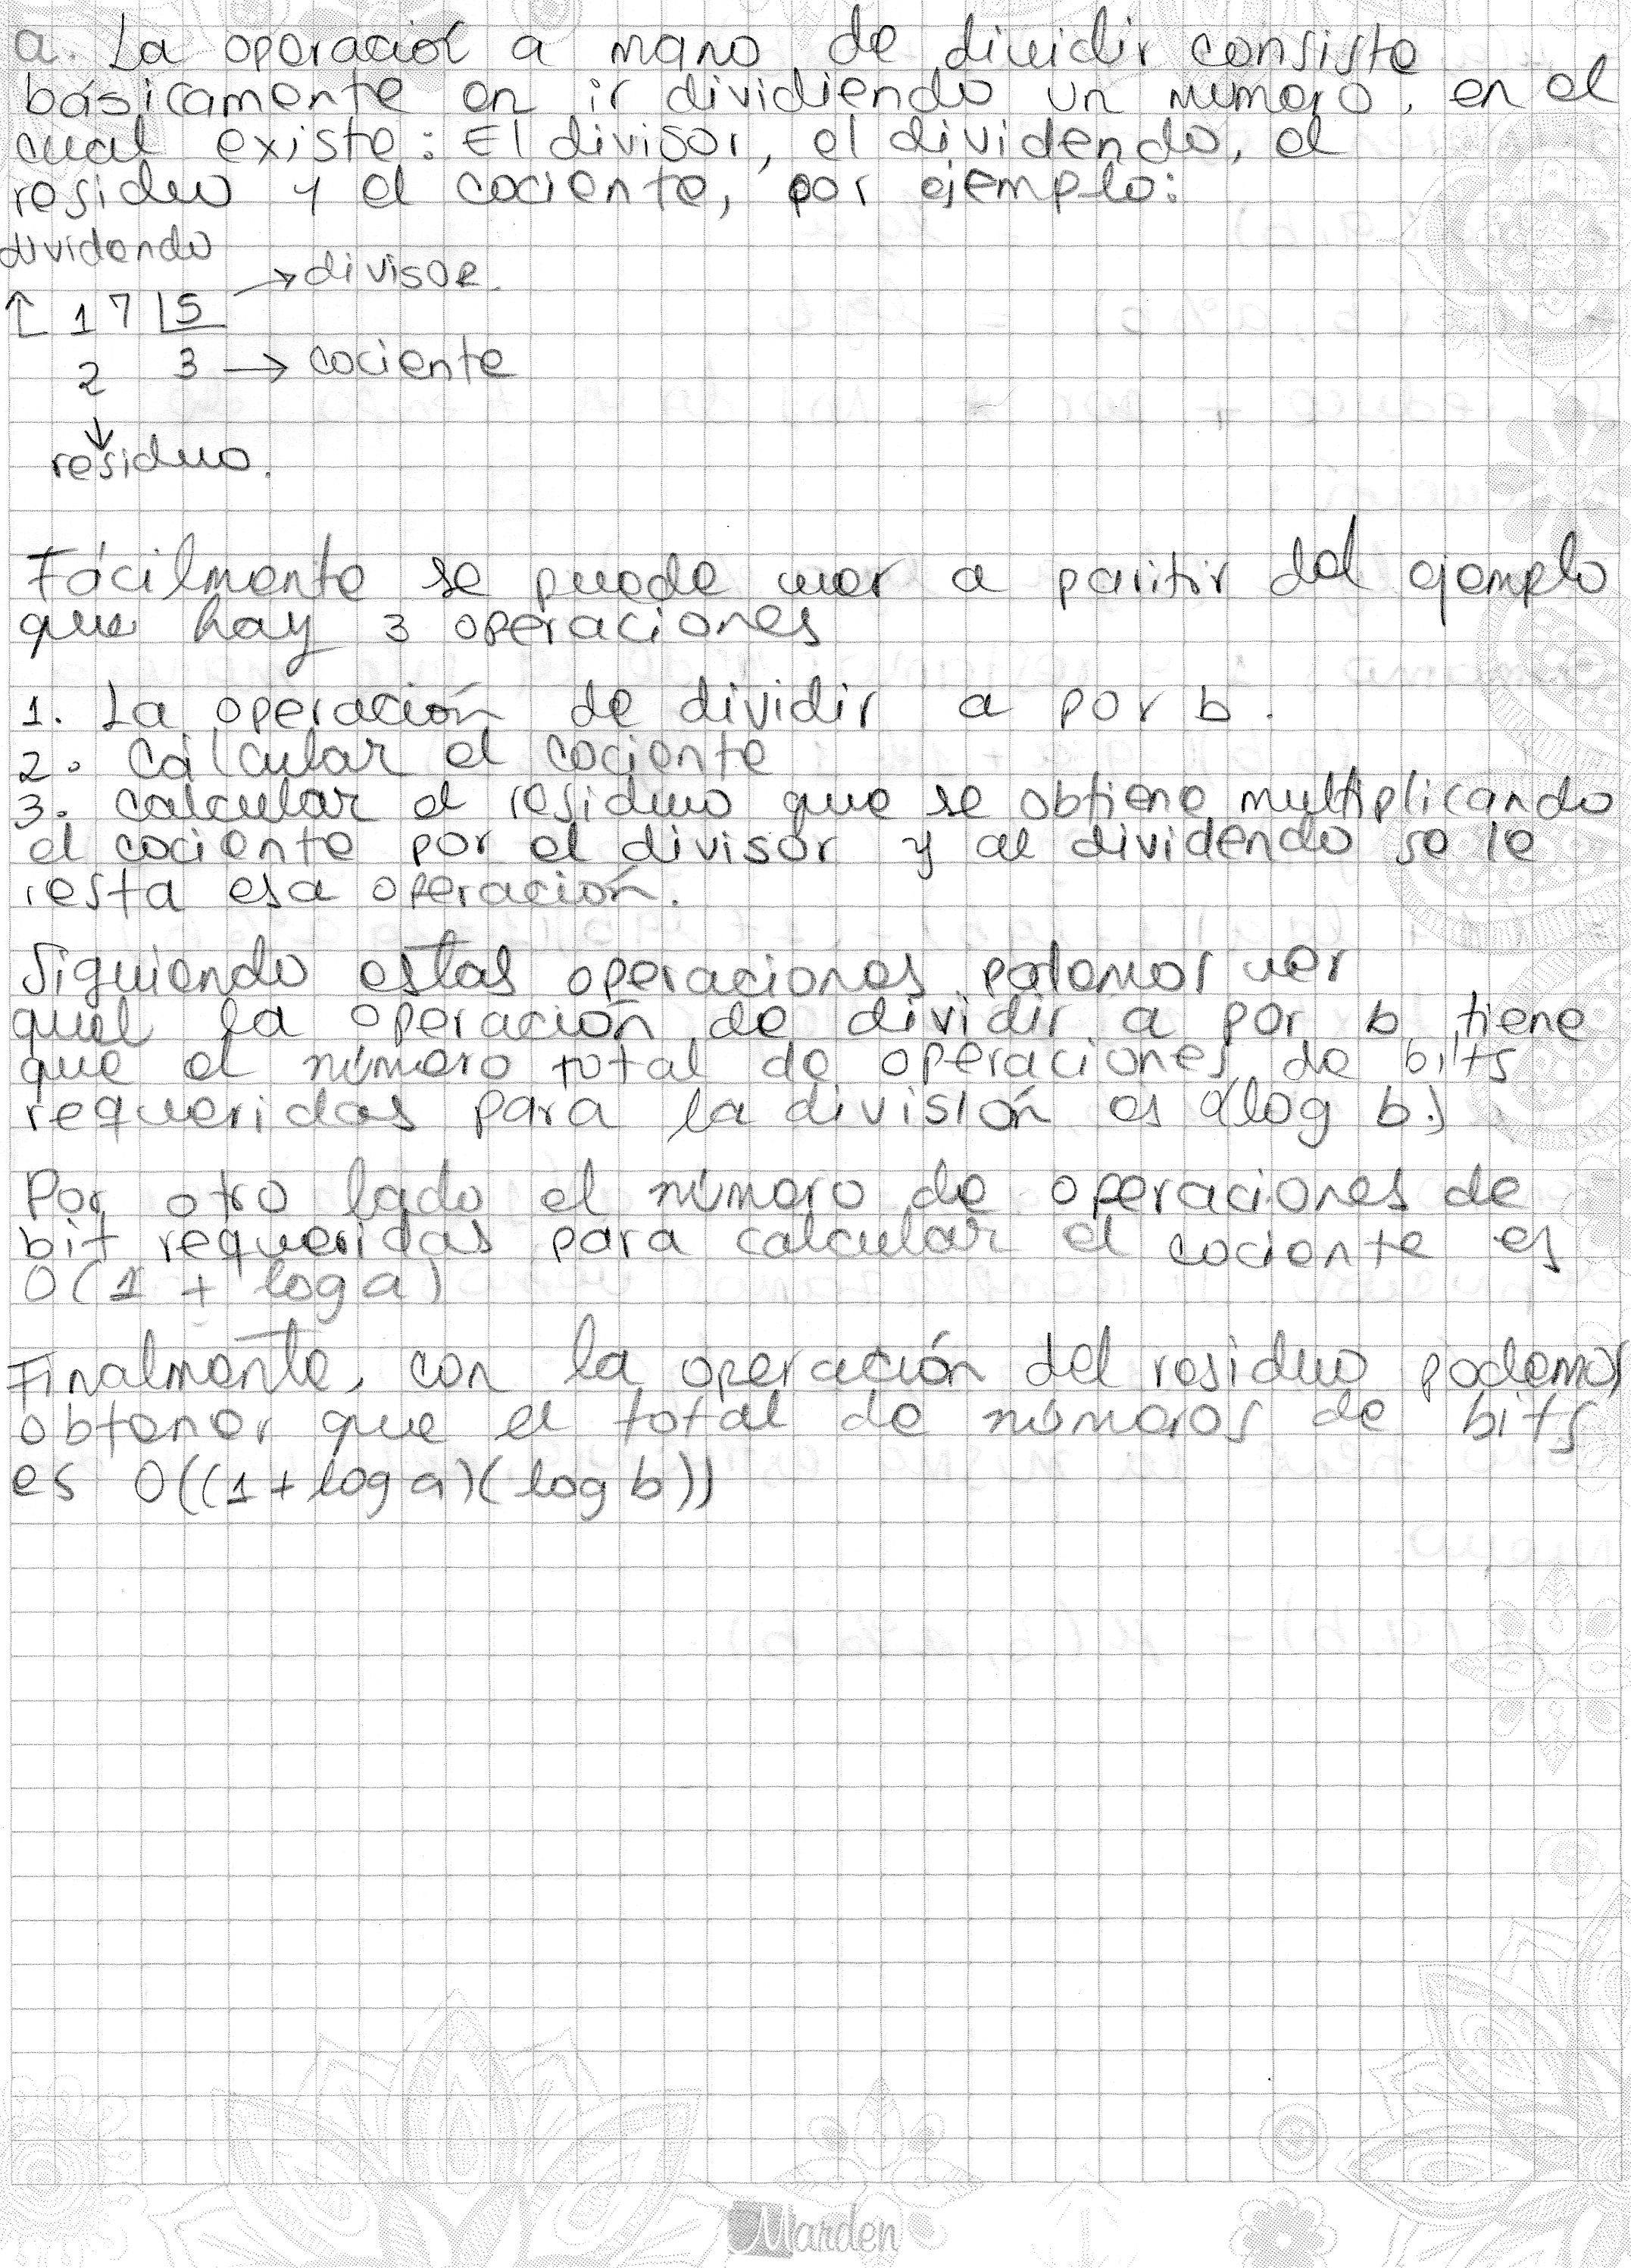 a. La operación a mano de dividir consiste
básicamente en ir dividiendo un número, en el
cual existe: El divisor, el dividendo, el
residuo y el cociente, por ejemplo:
dividendo
→ divisor.
↑ 17 |5
2 3 → cociente
↓
residuo.
Fácilmente se puede ver a paritir del ejemplo
que hay 3 operaciones
1. La operación de dividir a por b.
2. Calcular el cociente
3. calcular el residuo que se obtiene multiplicando
el cociente por el divisor y al dividendo se le
resta esa operación.
Siguiendo estas operaciones podemos ver
que la operación de dividir a por b tiene
que el número total de operaciones de bits
requeridas para la división es O(log b.)
Por otro lado el número de operaciones de
bit requeridas para calcular el cociente es
O(1 + log a)
Finalmente, con la operación del residuo podemos
obtener que el total de números de bits
es O((1 + log a)(log b))
Marden